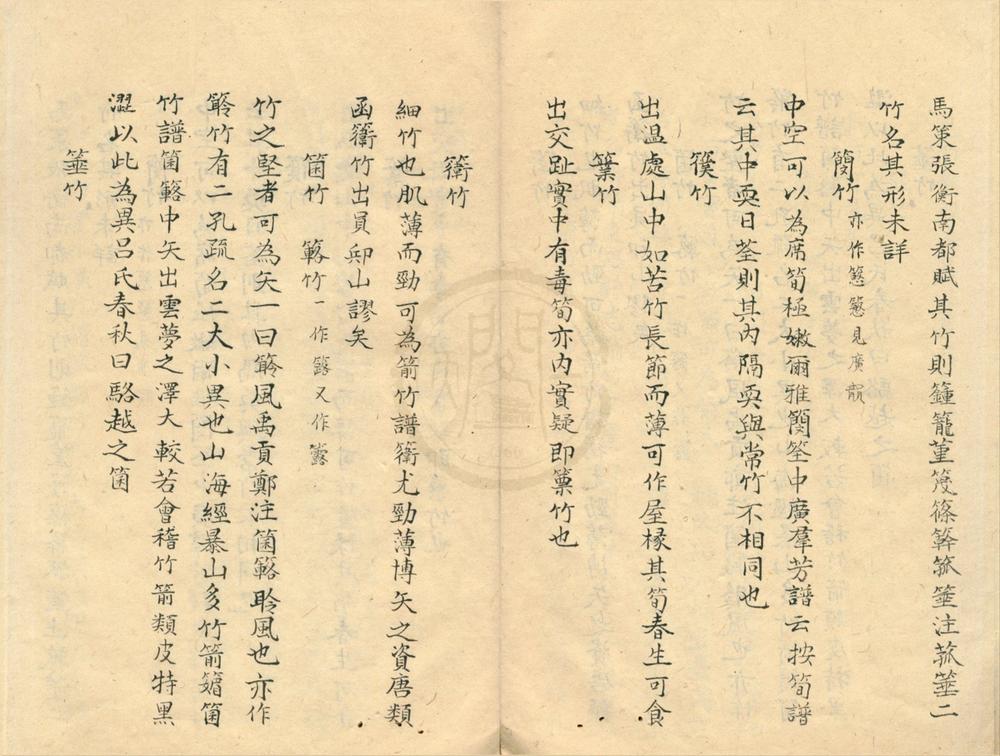 馬策張衡南都賦其竹則籦籠菫篾篠簳箛箠注箛箠二
竹名其形未詳
䉲竹亦作笢見廣韻
中空可以為席筍極嫩爾雅䉲筡中廣羣芳譜云按筍譜
云其中耎曰筡則其內隔耎與常竹不相同也
篥竹
出温處山中如苦竹長節而薄可作屋椽其筍春生可食
出交趾實中有毒筍亦內實疑即篥竹也
䘙竹
細竹也肌薄而勁可為箭竹譜䘙尤勁薄博矢之資唐類
函䘙竹出員丘山謬矣
箘竹
簵竹一作簬又作簬
竹之堅者可為矢一曰笭風禹貢鄭注箘簵聆風也亦作
笭竹有二孔疏名二大小異也山海經暴山多竹箭䉋箘
竹譜箘簵中矢出雲夢之澤大較若會稽竹箭類皮特黑
澀以此為異呂氏春秋曰駱越之箘
箠竹